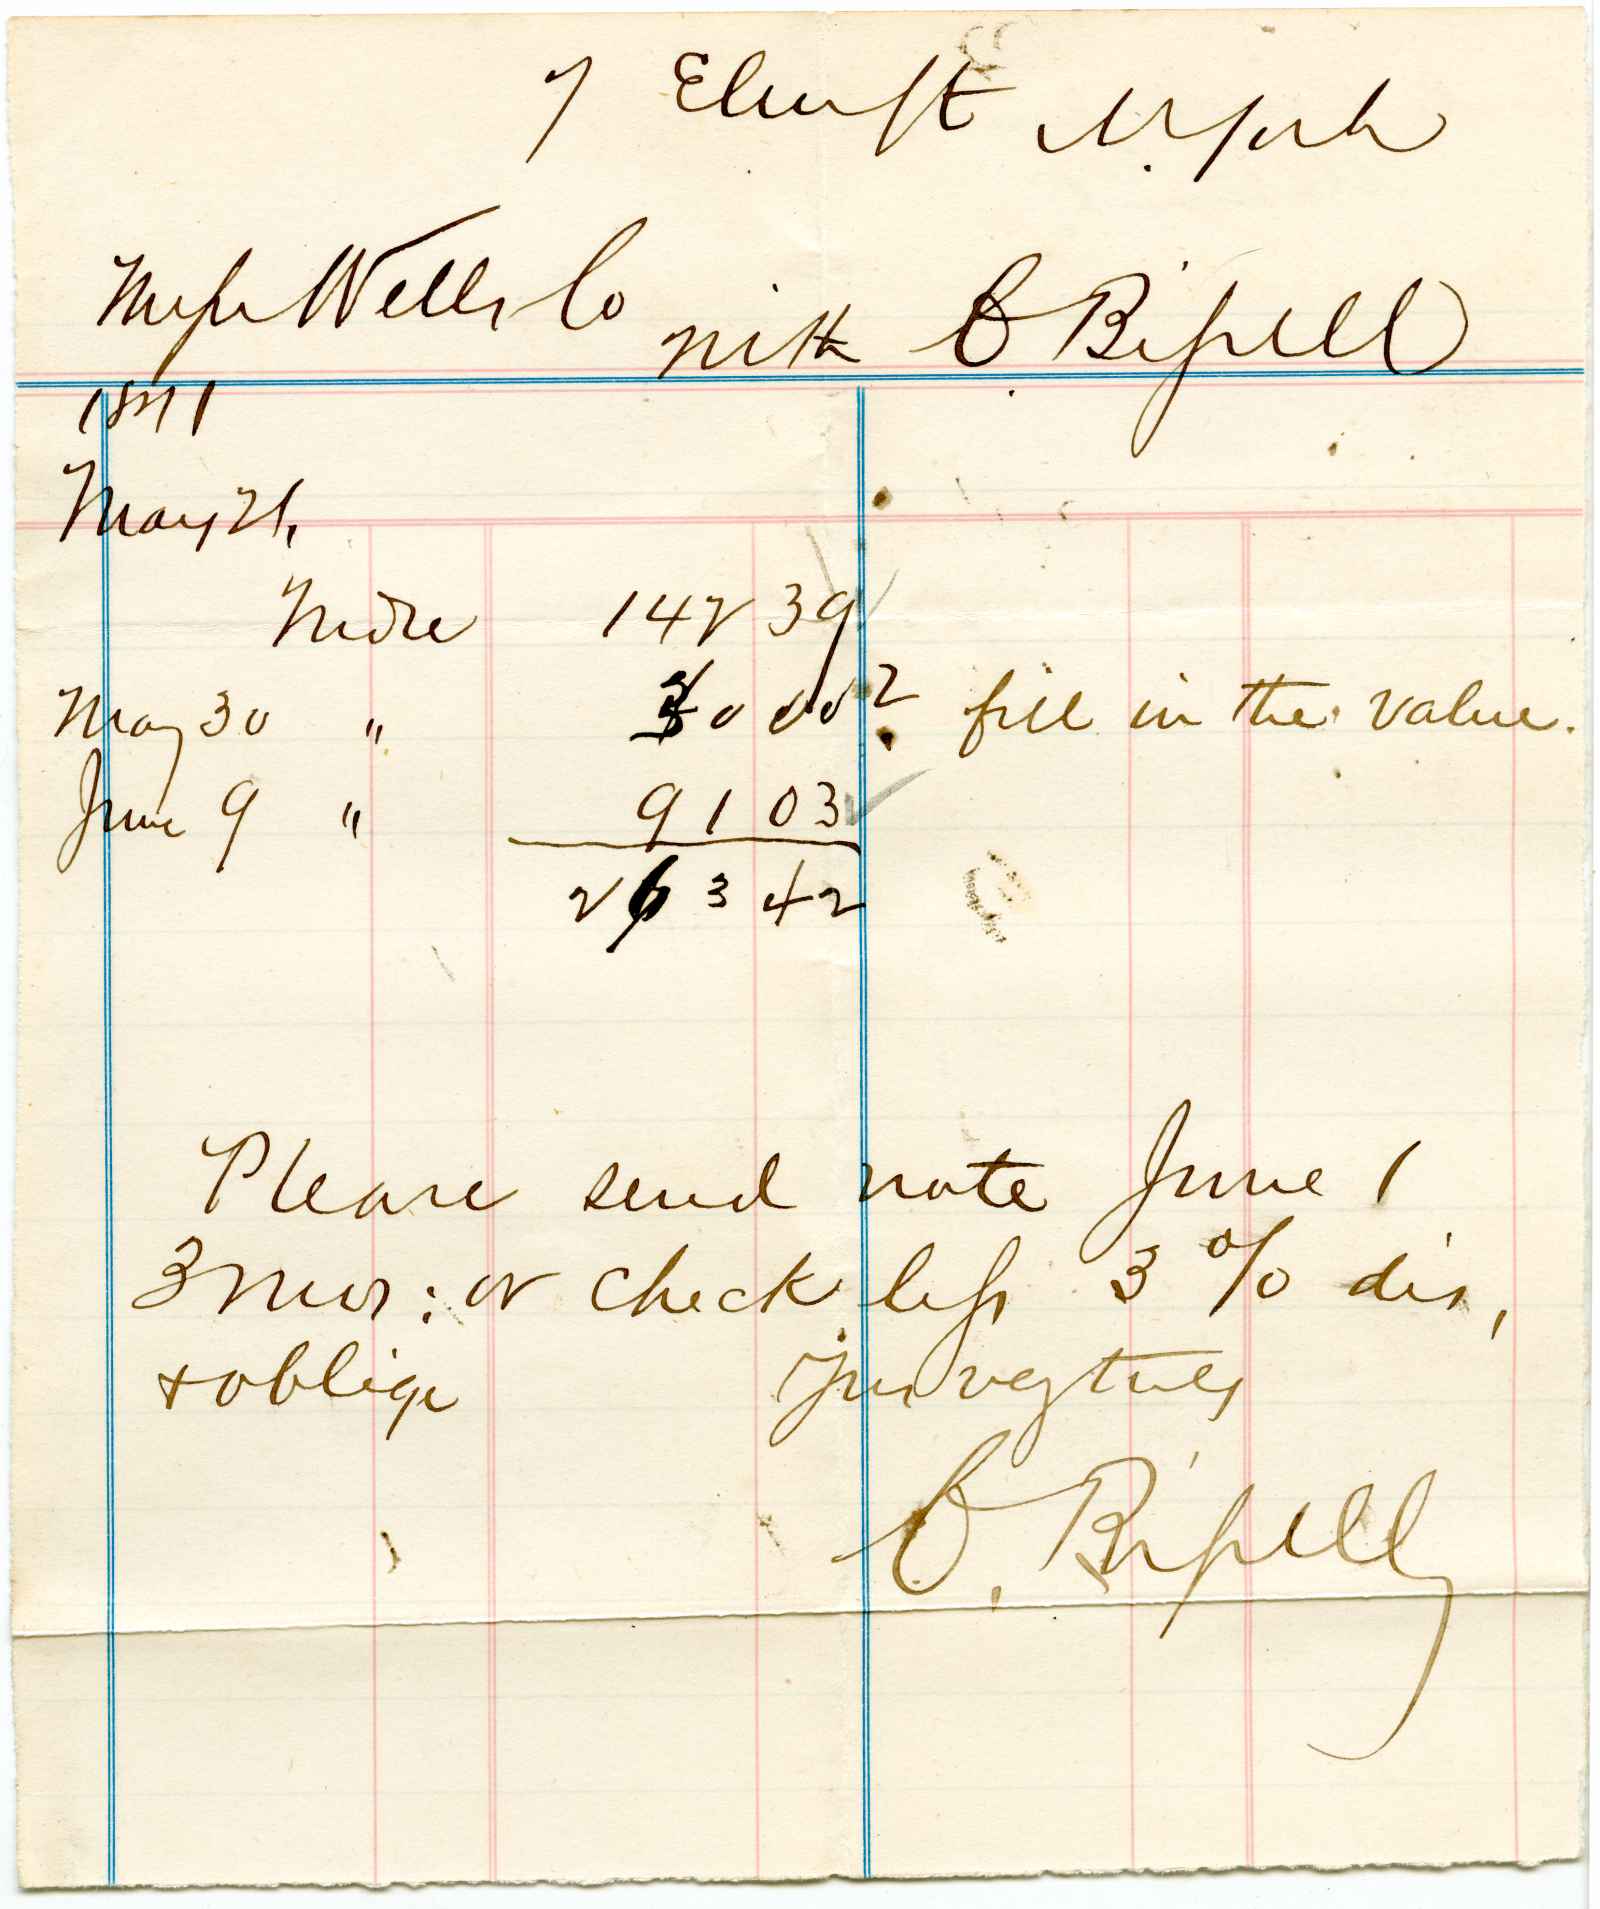 7 Elm St N. York
Mess Wells Co with C. Bissell
1871
May 21,
Mdse 142 39
May 30 " 30 00 ? fill in the value.
June 9 " 91 03
263 42
Please send note June 1
3 mos: or check less 3 % dis,
+ oblige Yrs vy truly
C. Bissell